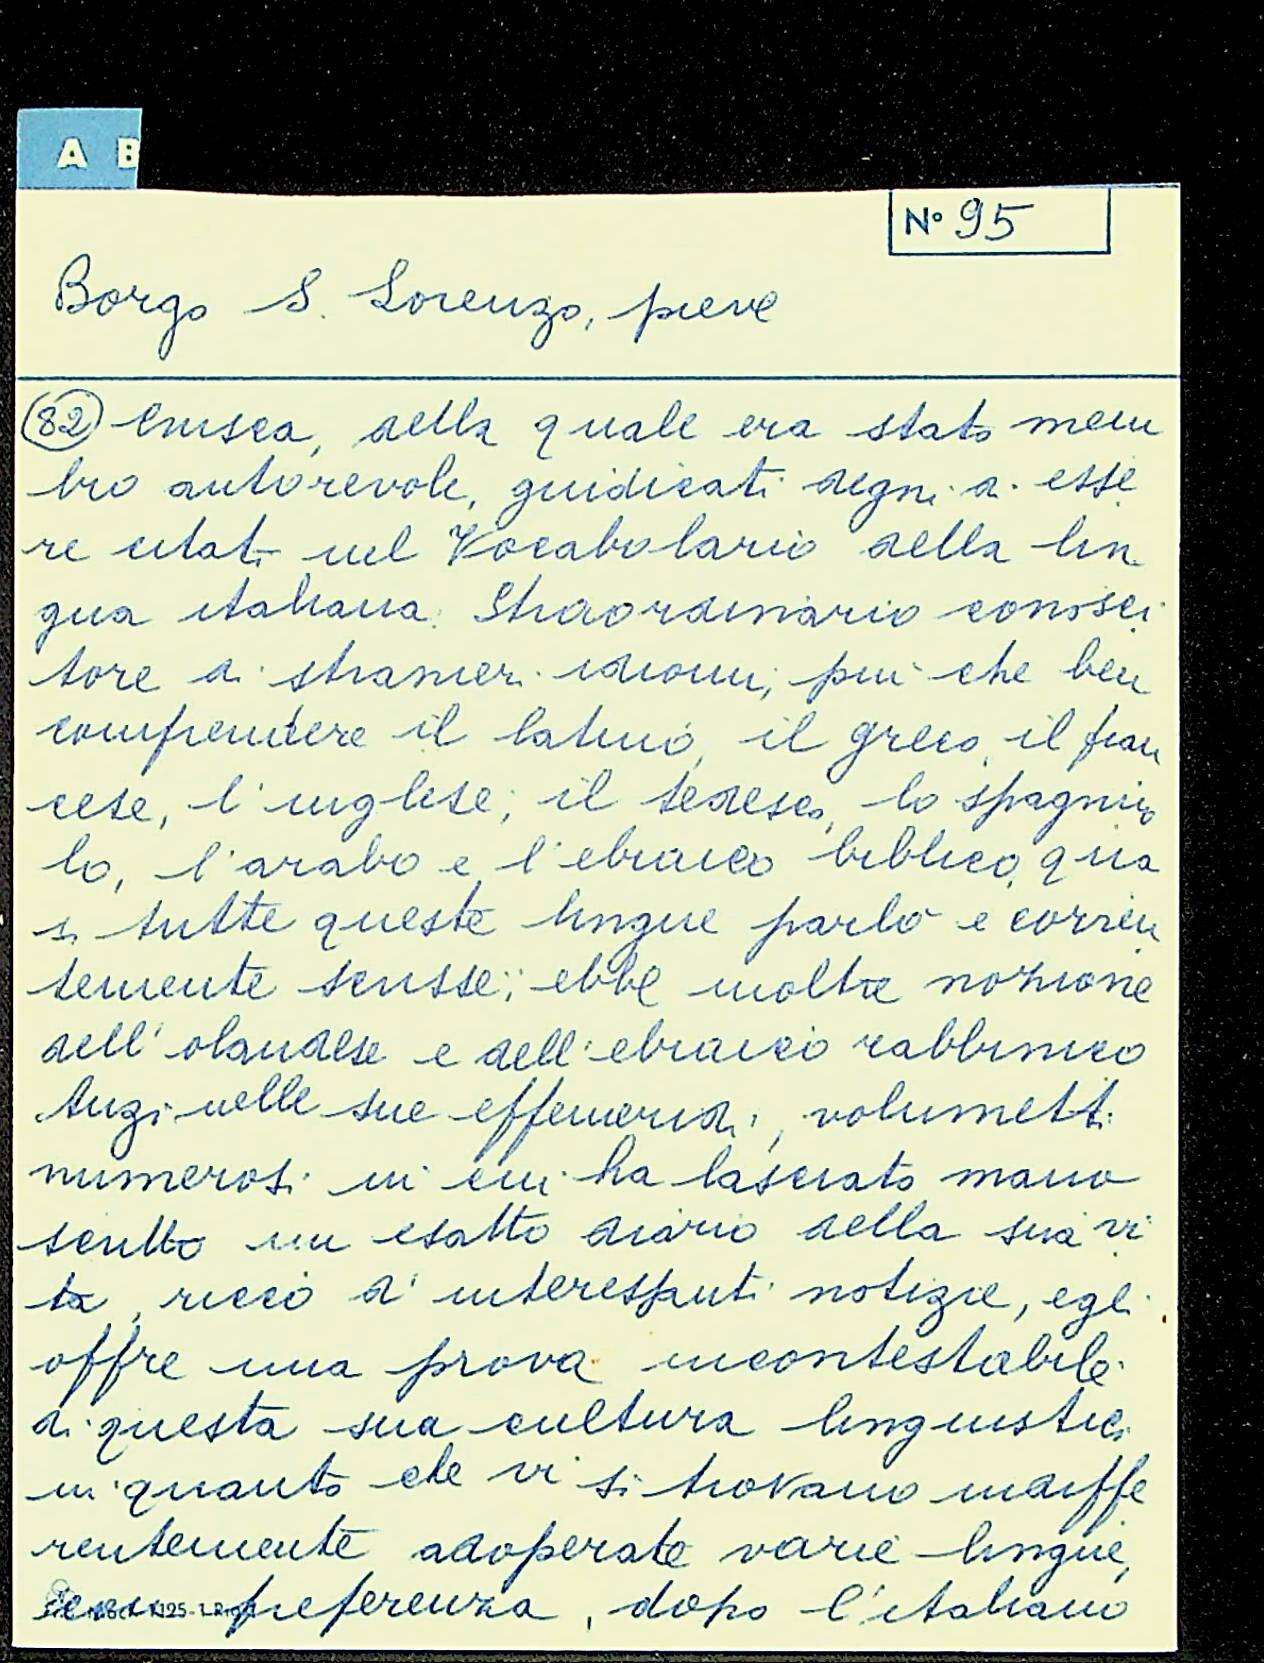 A B
N° 95
Borgo S. Lorenzo, pieve
(82) Crusca, della quale era stato mem
bro autorevole, guidicati degni di esse
re citati nel Vocabolario della lin
gua italiana. Straordinario conosci
tore di stranieri idiomi, più che ben
comprendere il latino, il greco, il fran
cese, l'inglese, il tedesco, lo spagnuo
lo, l'arabo e l'ebraico biblico, qua
si tutte queste lingue parlò e corren
temente scrisse; ebbe inoltre nozione
dell'olandese e dell'ebraico rabbinico
Anzi nelle sue effemeridi, volumetti
numerosi in cui ha lasciato mano
scritto un esatto diario della sua vi
ta, ricco d'interessanti notizie, egli
offre una prova incontestabile
di questa sua cultura linguistica
in quanto che vi si trovano indiffe
rentemente adoperate varie lingue,
preferenza, dopo l'italiano